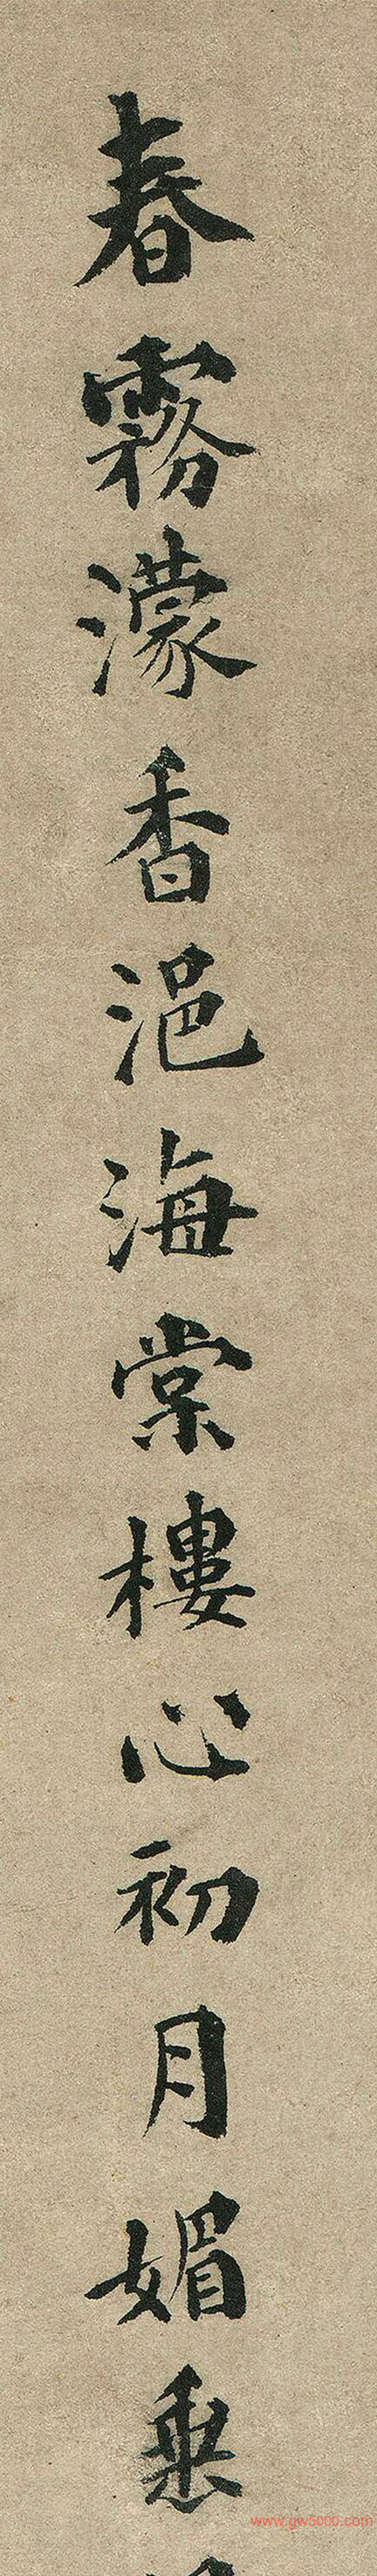 春霧濛香浥海棠樓心初月媚垂
www.gw5000.com